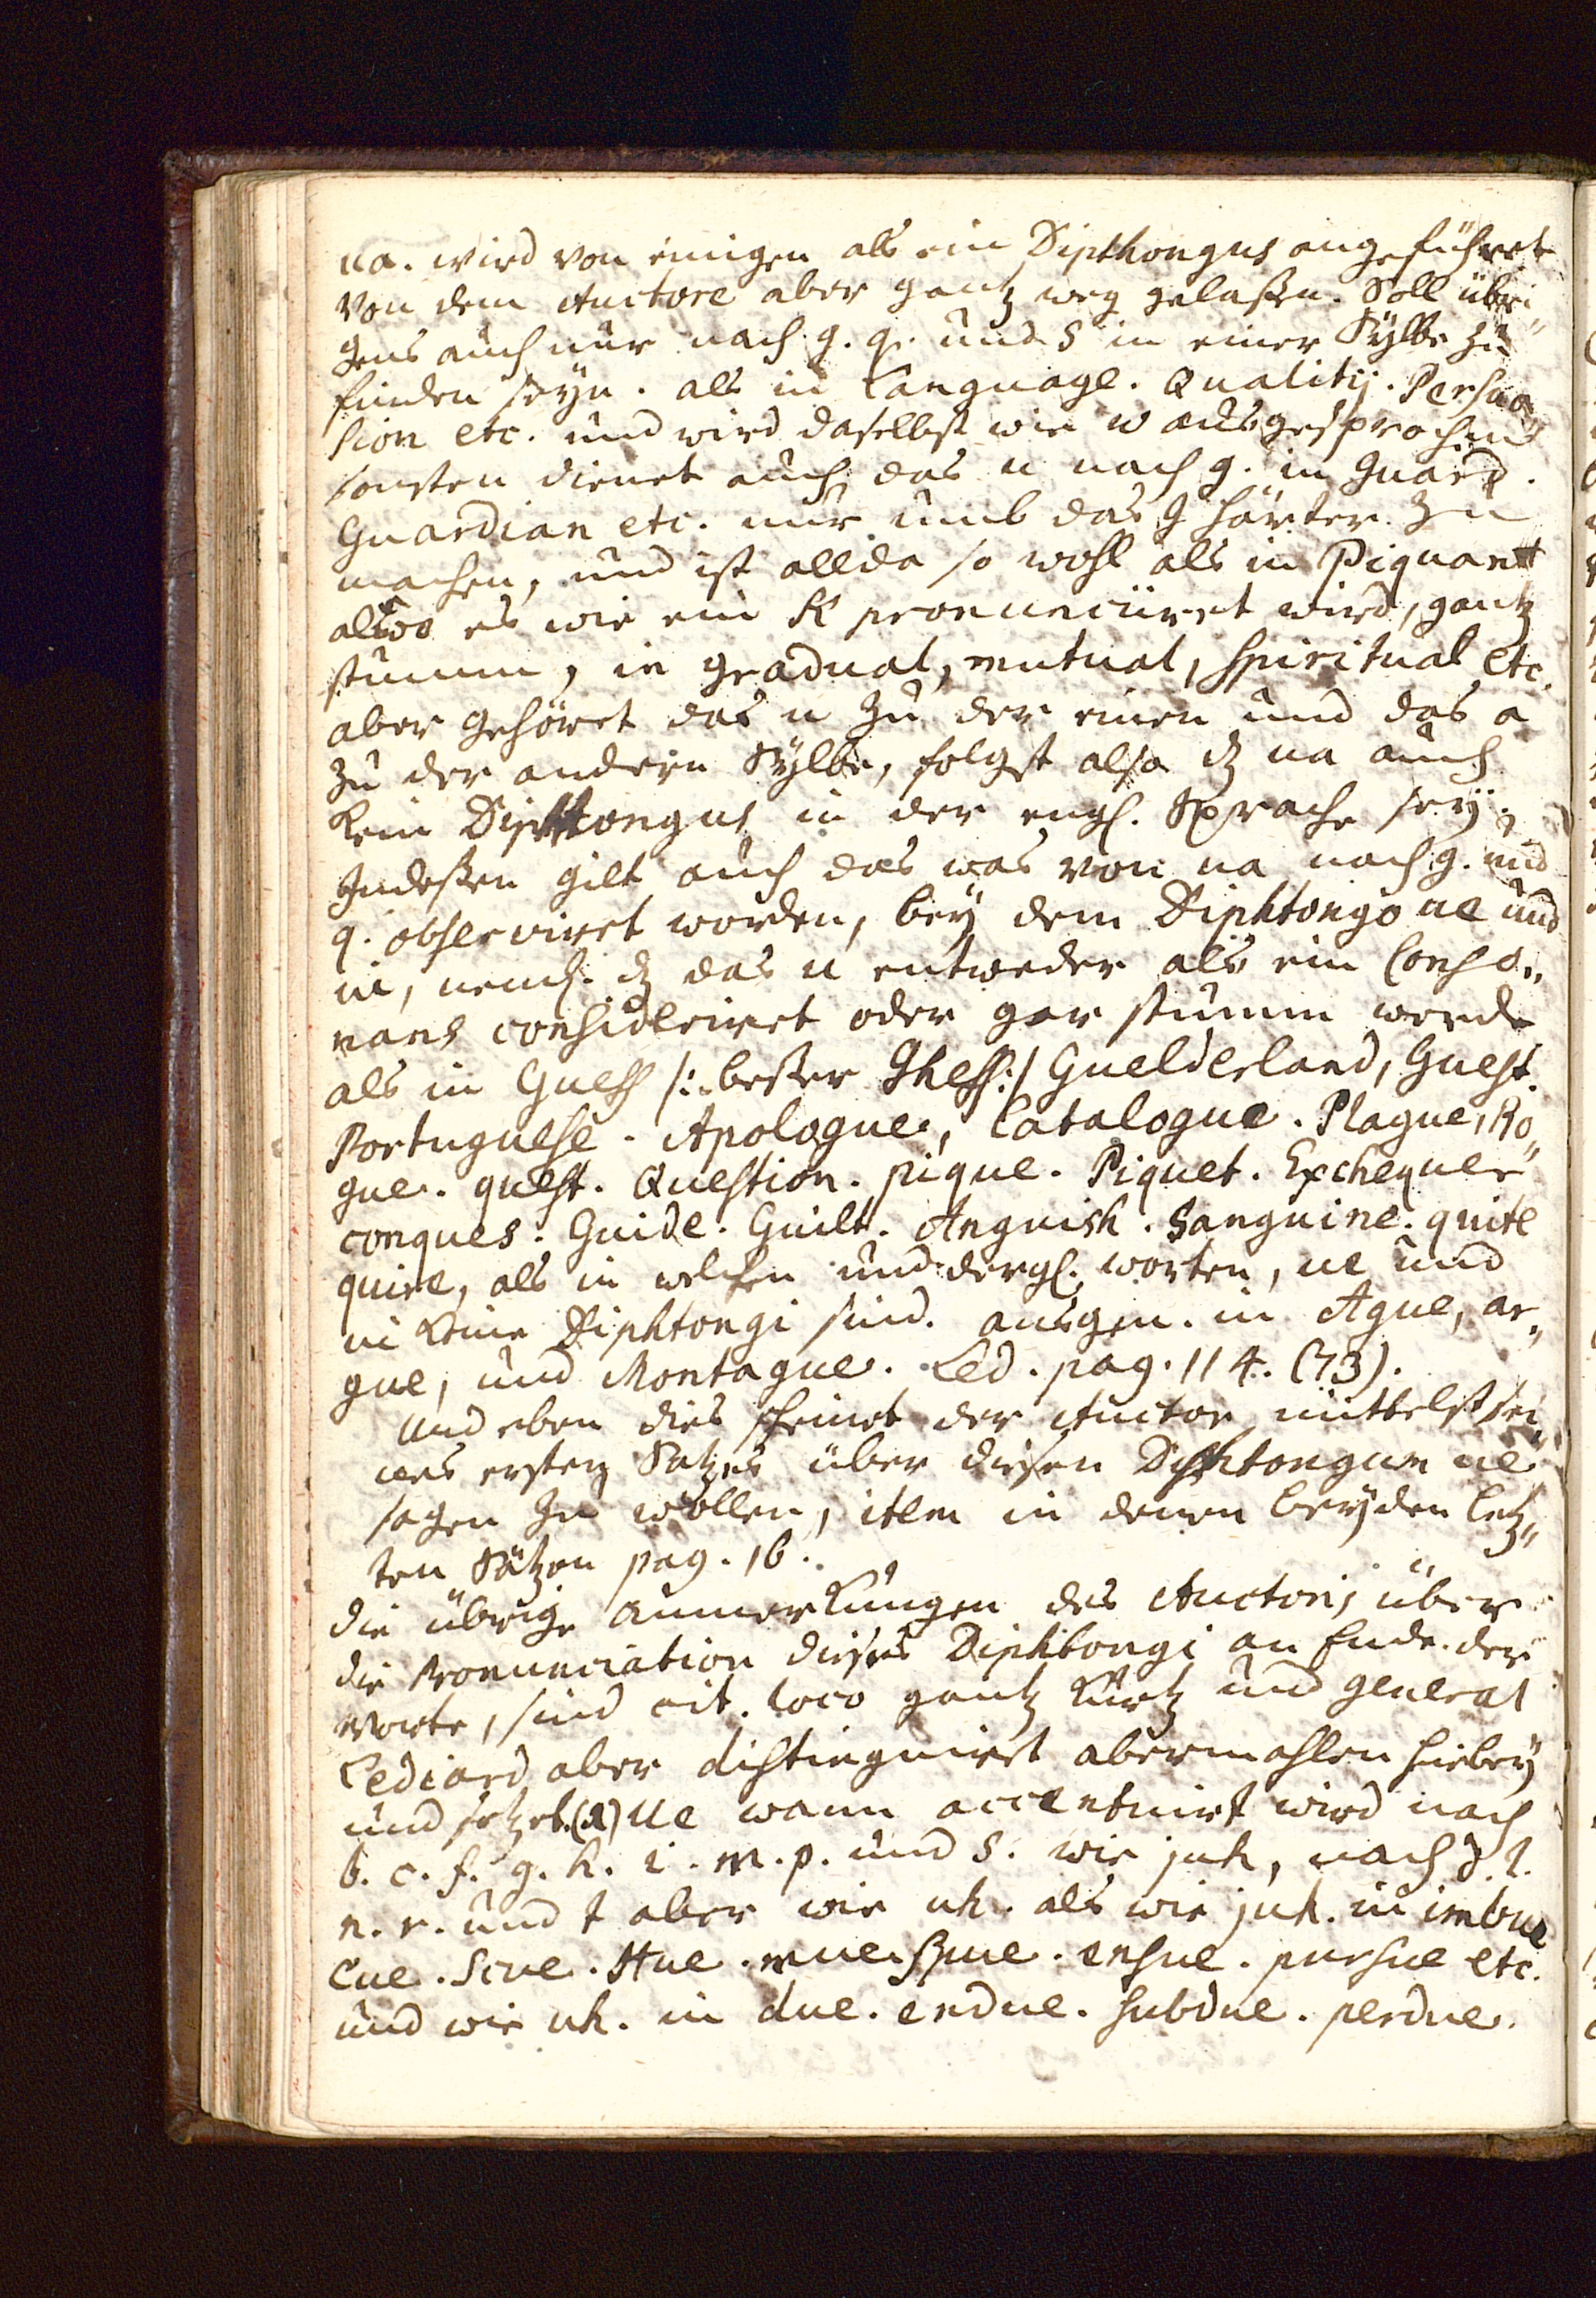 ua. wird von einigen als ein Dipthongus angeführet
von dem Auctore aber gantz weg gelaßen. Soll übri„
gens auch nur nach g. q. und s in einer Sylbe zu
finden seyn. als in Language. Quality. Persua
sion etc. und wird daselbst wie w ausgesprochen
sonsten dienet auch das u nach g. in Guard.
Guardian etc. nur umb das g härter zu
machen, und ist allda so wohl als in Piquant
alwo es wie ein K pronunciiret wird, gantz
stumm, in gradual, mutual, spiritual etc.
aber gehöret das u zu der einen und das a
zu der andern Sylbe, folgt also dz ua auch
kein Diphtongus in der engl. Sprache sey.
Indeßen gilt auch das was von ua nach g. und
q. observiret worden, bey dem Diphtongo ue und
ui, neml. dz das u entweder als ein Conso„
nans consideriret oder gar stumm werde
als in Guess /: beßer Ghess :/ Guelderland, Guest.
Portuguese. Apologue, Catalogue. Plague, Ro„
gue. quest. Question. pique. Piquet. Exchequer
conques. Guide. Guilt. Anguish. Sanguine. quite
quire, als in welchen und dergl. worten, ue und
ui keine Diphtongi sind. ausgen. in Ague, ar„
gue, und Montague. Led. pag. 114. (73).
Und eben dies scheinet der Auctor mittelst sei„
nes ersten Satzes über diesen Diphtongum ue
sagen zu wollen, item in denen beyden letz„
ten Sätzen pag. 16.
die übrige Anmerkungen des Auctoris über
die Pronunciation dieses Diphtongi an Ende der
Worte, sind cit. loco gantz kurtz und general
Lediard aber distinguirt abermahlen hiebey
und setzet (a) ue wann accentuirt wird nach
b. c. f. g. h. i. m. p. und s. wie juh, nach d. l.
n. r. und t aber wie uh. als wie juh. in imbue
Cue. Scue. Hue. mue. Spue. ensue. pursue etc.
und wie uh. in due. endue. subdue. perdue.